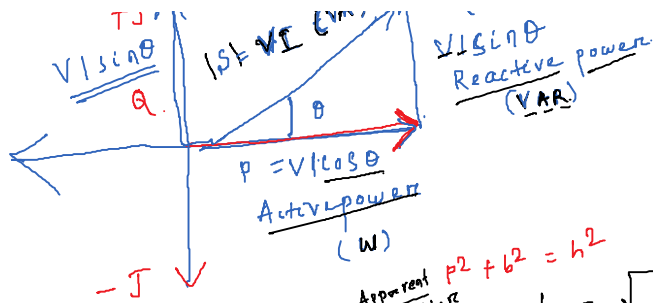 +J
VIsinθ
Q.
|S| = VI (VA)
θ
VIsinθ
Reactive power
(VAR)
P = VIcosθ
Active power
(W)
-J
Apparent
p² + b² = h²